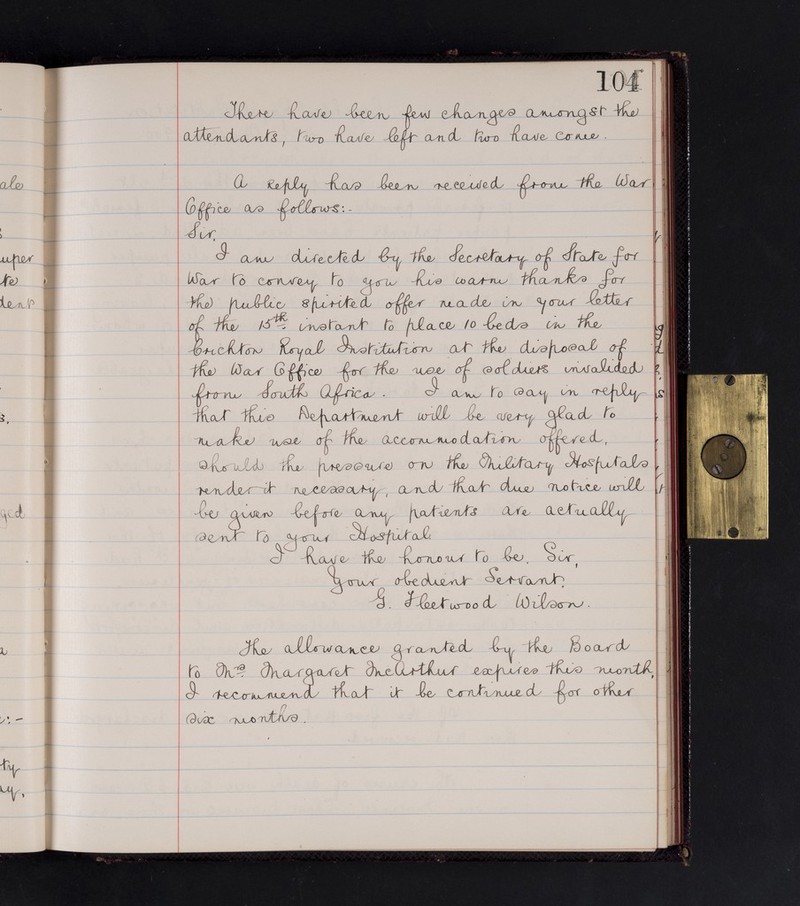 104
There have been few changes amongst the
attendants, two have left and two have come.
A reply has been received from the War
Office as follows:-
Sir,
I am directed by the Secretary of State for
War to convey to you his warm thanks for
the public spirited offer made in your letter
of the 15th instant to place 10 beds in the
Crichton Royal Institution at the disposal of
the War Office for the use of soldiers invalided
from South Africa. I am to say in reply
that this Department will be very glad to
make use of the accommodation offered,
should the pressure on the Military Hospitals
render it necessary, and that due notice will
be given before any patients are actually
sent to your Hospital.
I have the honour to be, Sir,
Your obedient Servant,
G. Fleetwood Wilson.
The allowance granted by the Board
to Mrs Margaret McArthur expires this month,
I recommend that it be continued for other
six months.